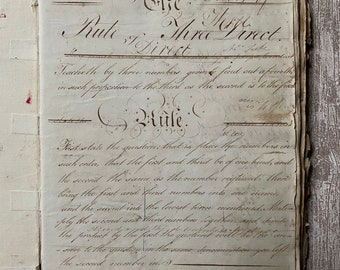 The
Rule of Three Direct
Direct
Teacheth by three numbers given to find out a fourth
in such proportion to the third as the second is to the first
Rule
First state the question, that is place the numbers in
such order that the first and third be of one kind, and
the second the same as the number required, then
bring the first and third numbers into one name
and the second into the lowest term mentioned. Multi
ply the second and third numbers together and divide
the product by the first the quotient will be the
answer to the question in the same denomination you left
the second number in